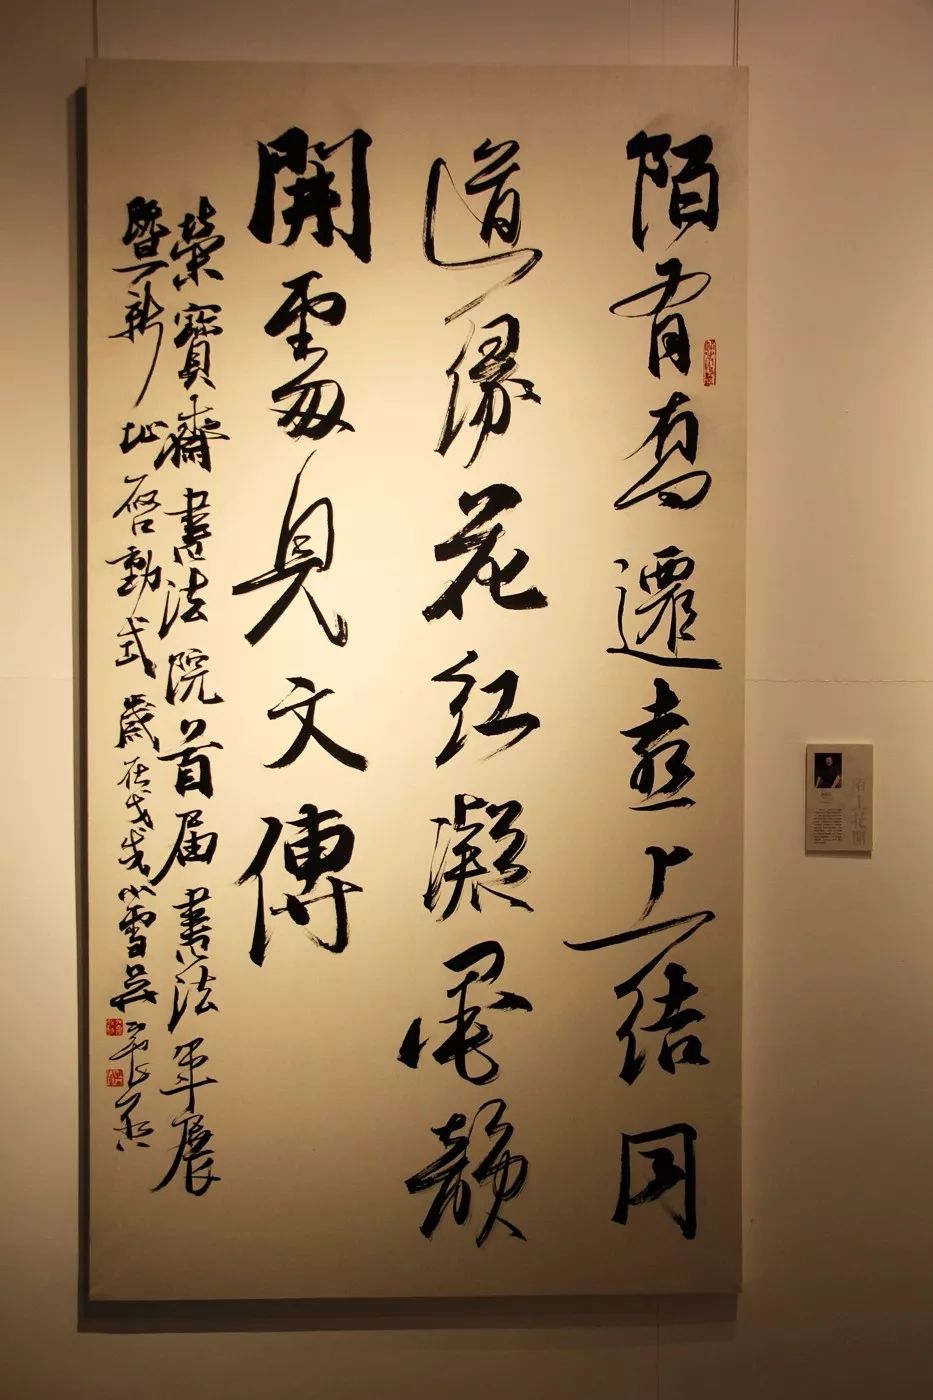 陌有喬遷意上結同
道緣花紅凝墨韻
開見文傳
榮寶齋書法院首届書法年展
暨新址啓動式歲在戊戌小雪吳
陌上花開